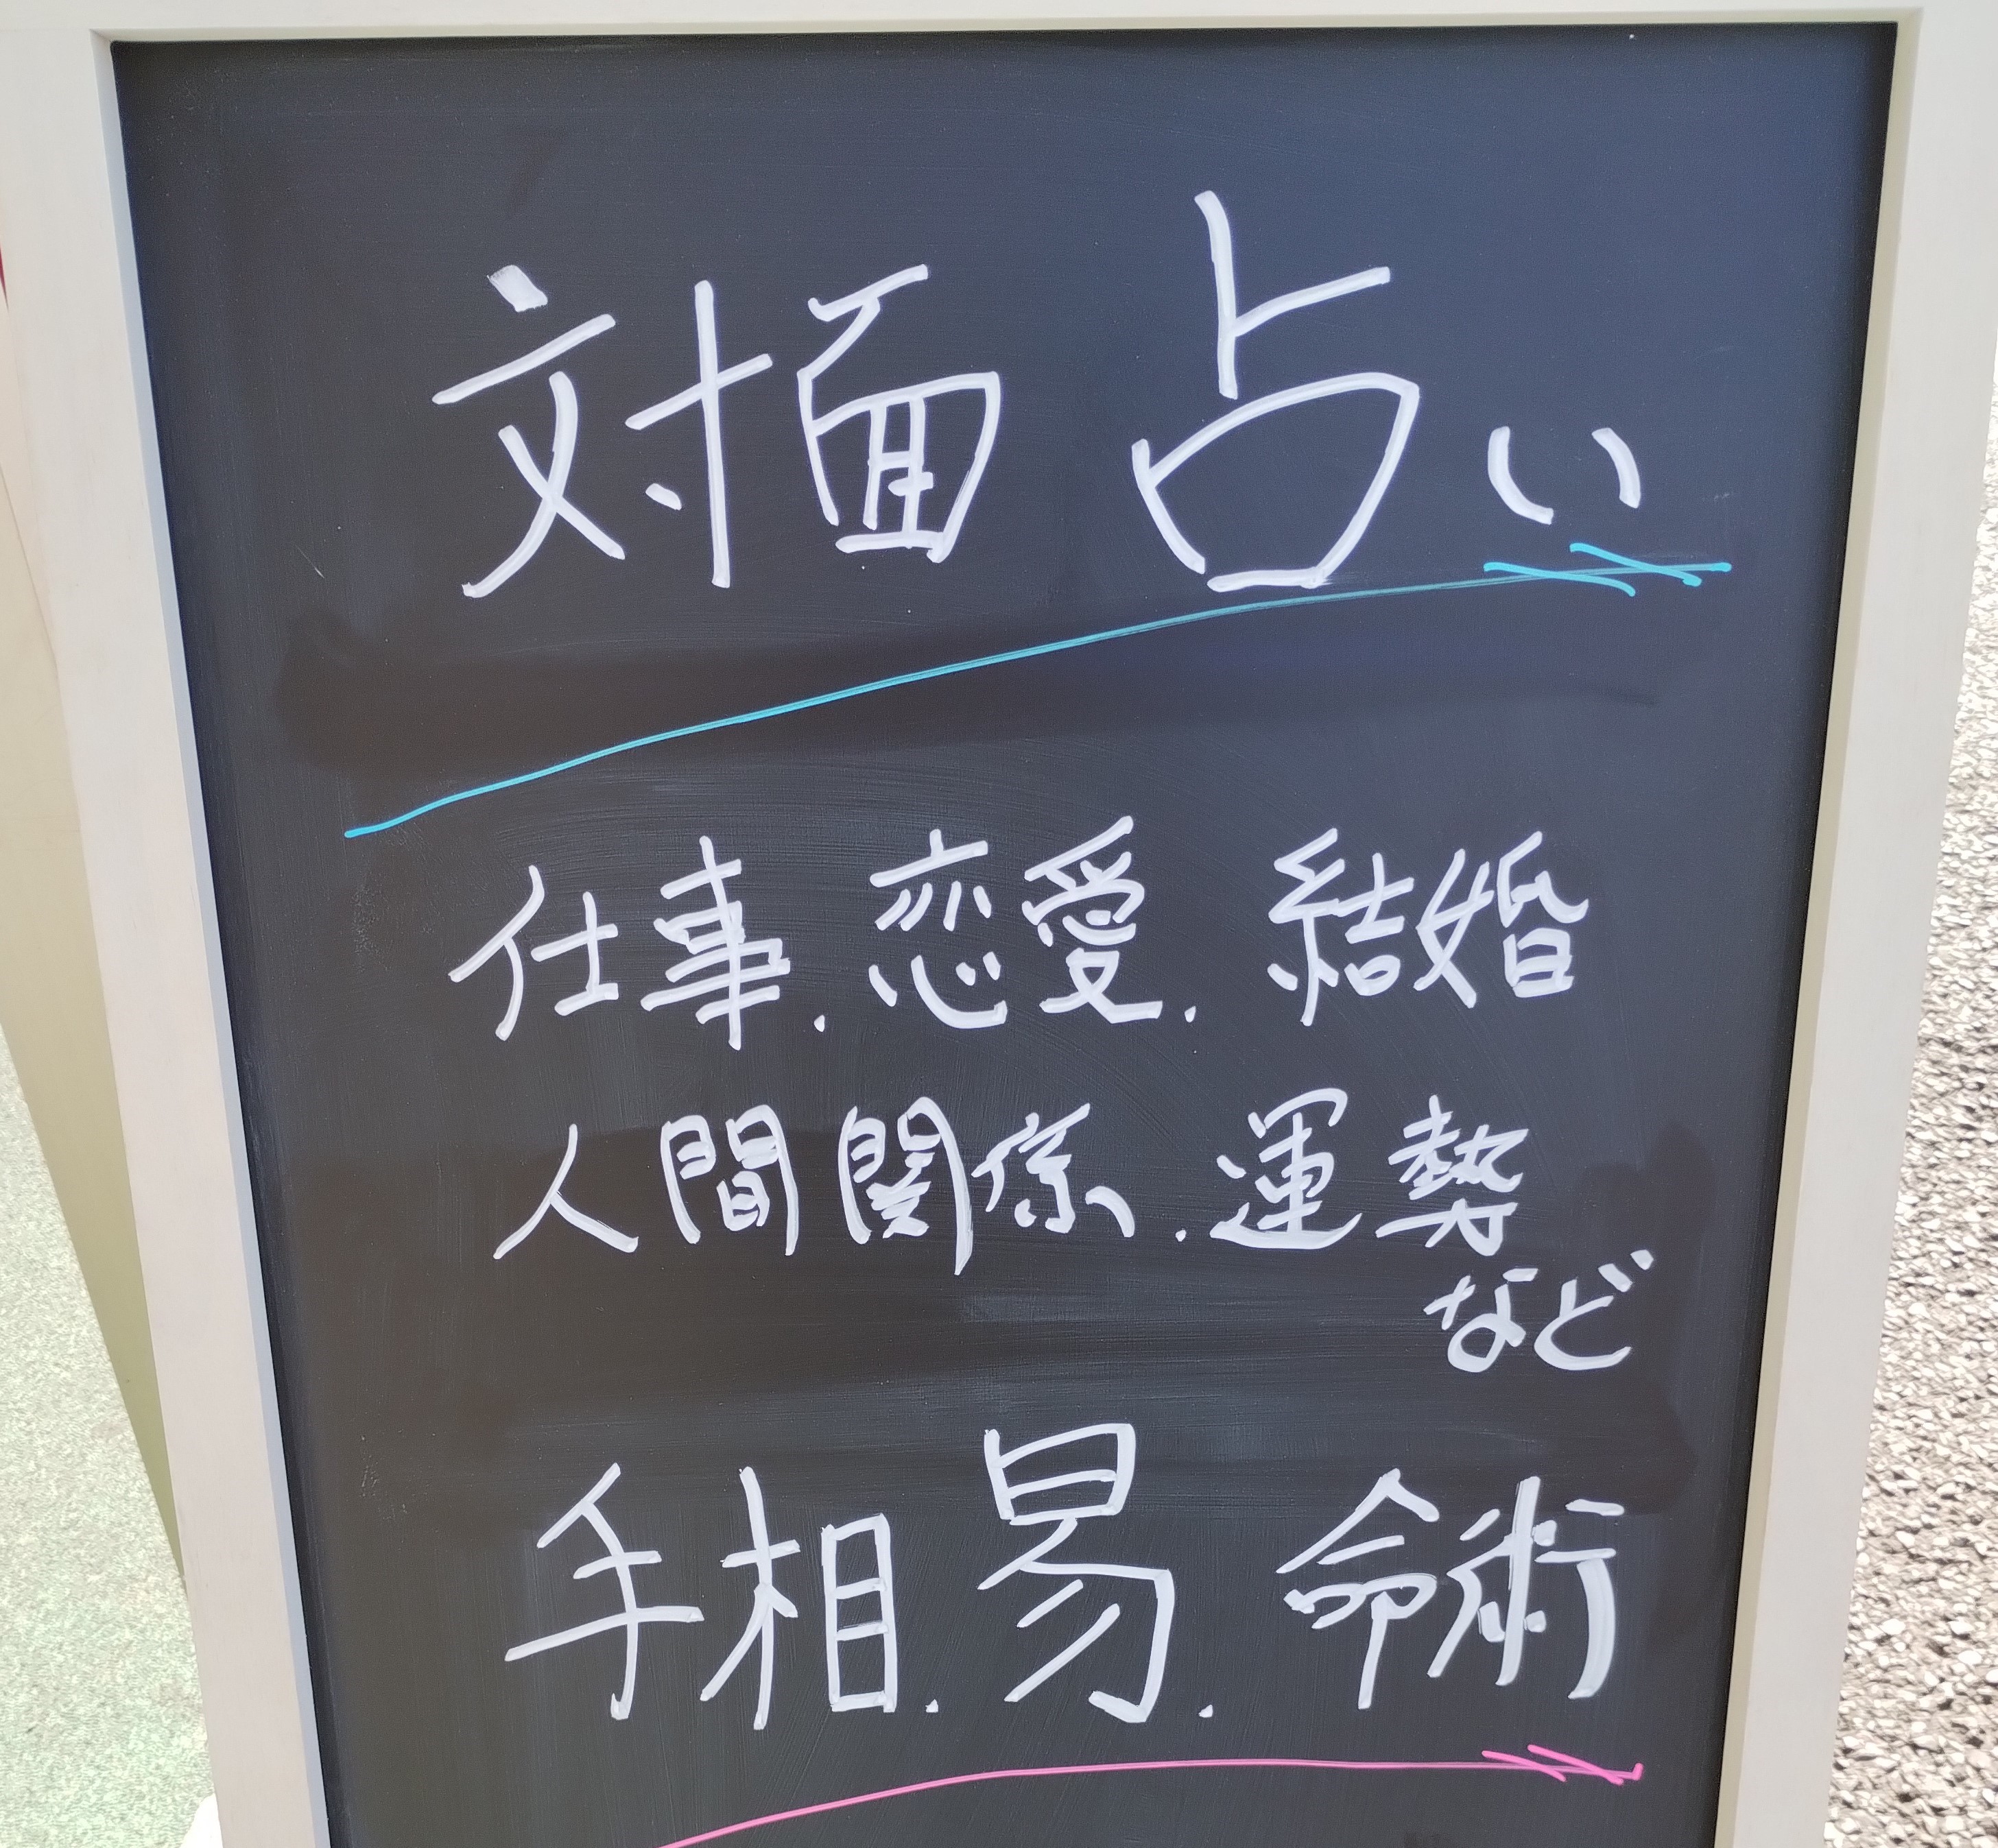 対面 占い
仕事.恋愛.結婚
人間関係.運勢
など
手相.易.命術